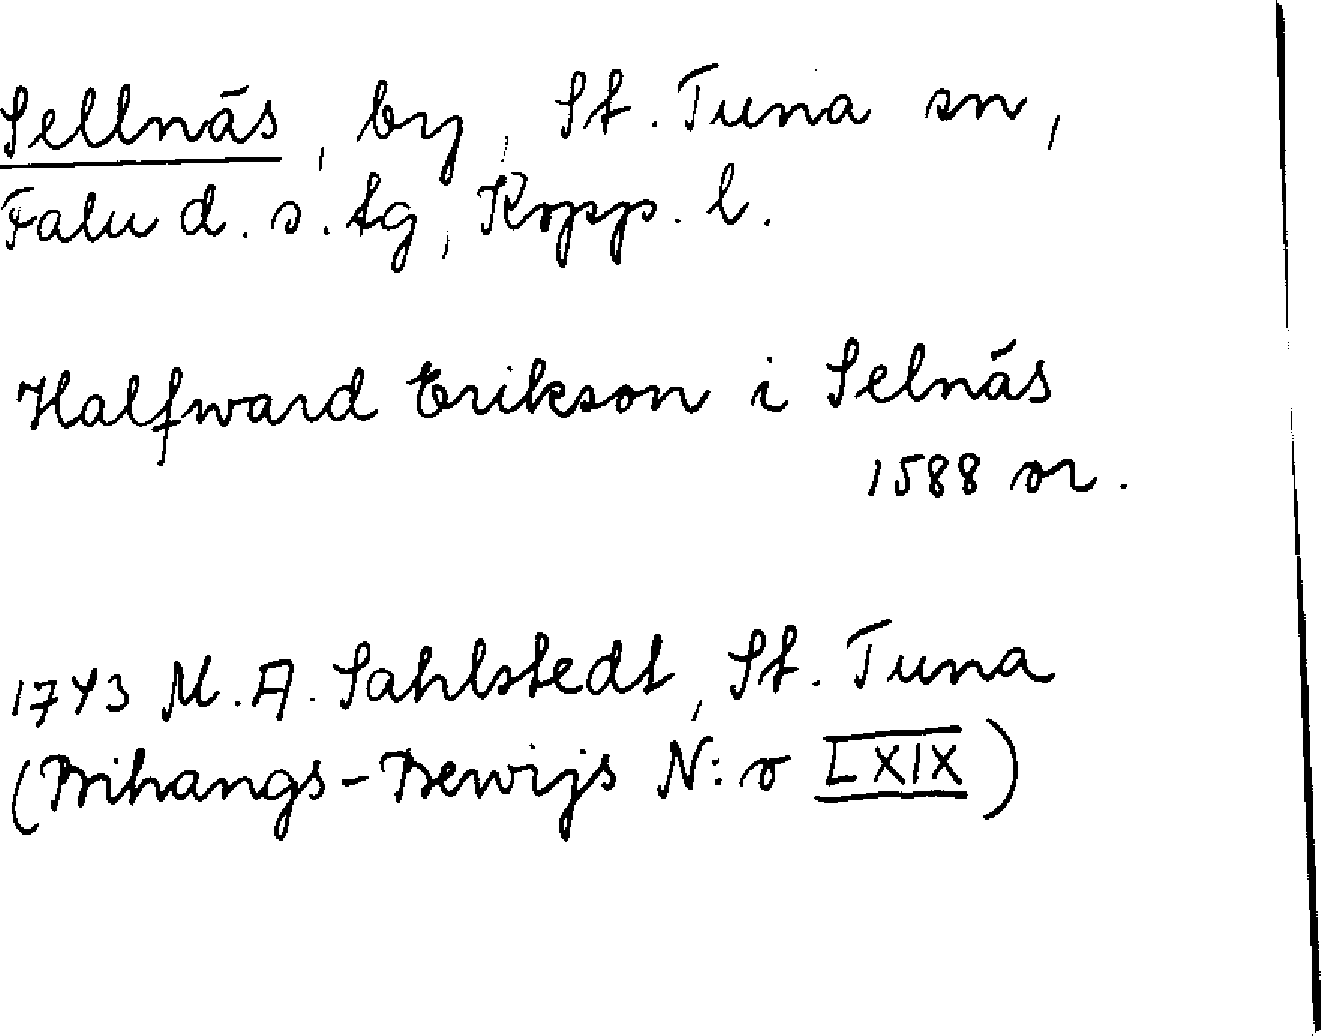 Sellnäs, by, St. Tuna sn,
Falu d. s. tg, Kopp. l.
Halfward Erikson i Selnäs
1588 or.
1743 M. A. Sahlstedt, St. Tuna
(Bihangs-Bewijs N:o LXIX)